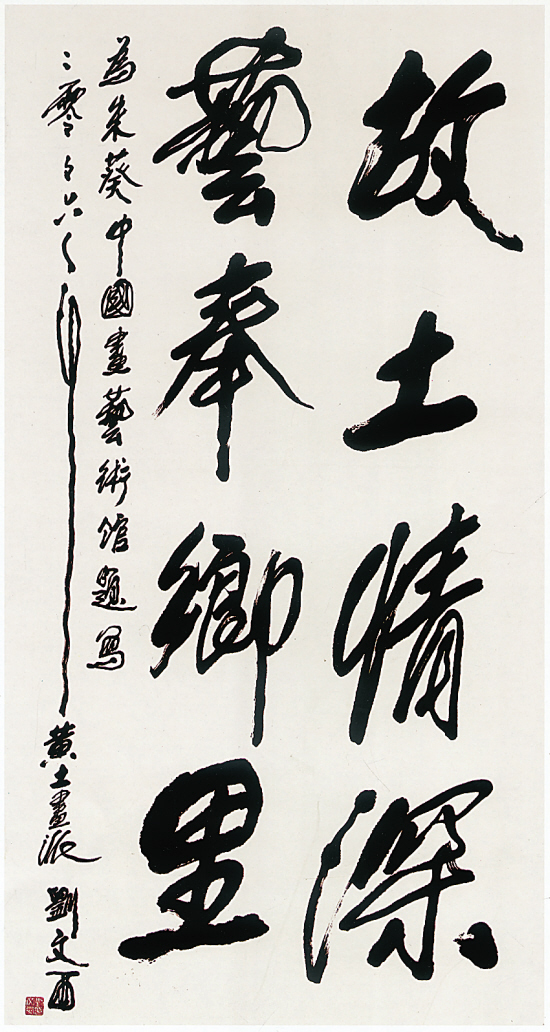 故土情深
藝奉鄉里
為朱葵中國畫藝術館題寫
二零零六年 黃土畫派 劉文西